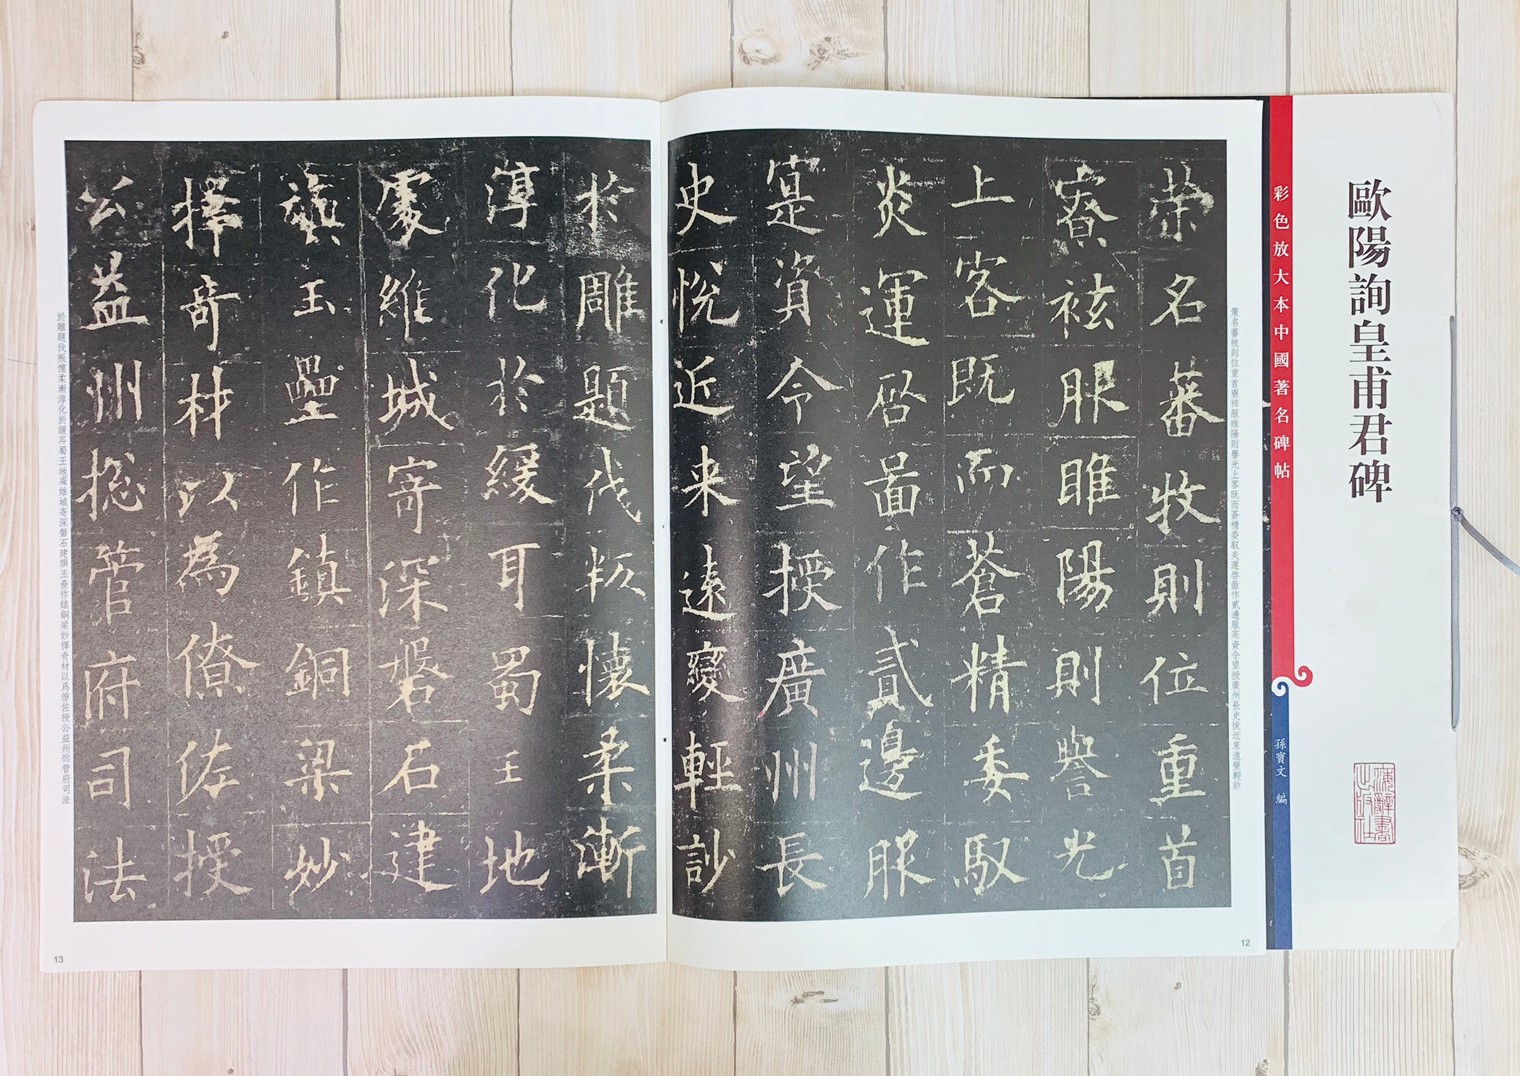 歐陽詢皇甫君碑
彩色放大本中國著名碑帖
孫寶文 編
策名蕃牧則位重首寮袨服睢陽則譽光上客既而蒼精委馭炎運啓啚作貳邊服寔資令望授廣州長史悅近来遠變輕訬
茦名蕃牧則位重首
寮袨服睢陽則譽光
上客既而蒼精委馭
炎運啓啚作貳邊服
寔資令望授廣州長
史悅近来遠變輕訬
12
於雕題伐叛懷柔漸
淳化於緩耳蜀王地
處維城寄深磐石建
旟玉壘作鎮銅梁妙
擇奇材以為僚佐授
公益州揔管府司法
於雕題伐叛懷柔漸淳化於緩耳蜀王地處維城寄深磐石建旟玉壘作鎮銅梁妙擇奇材以爲僚佐授公益州揔管府司法
13